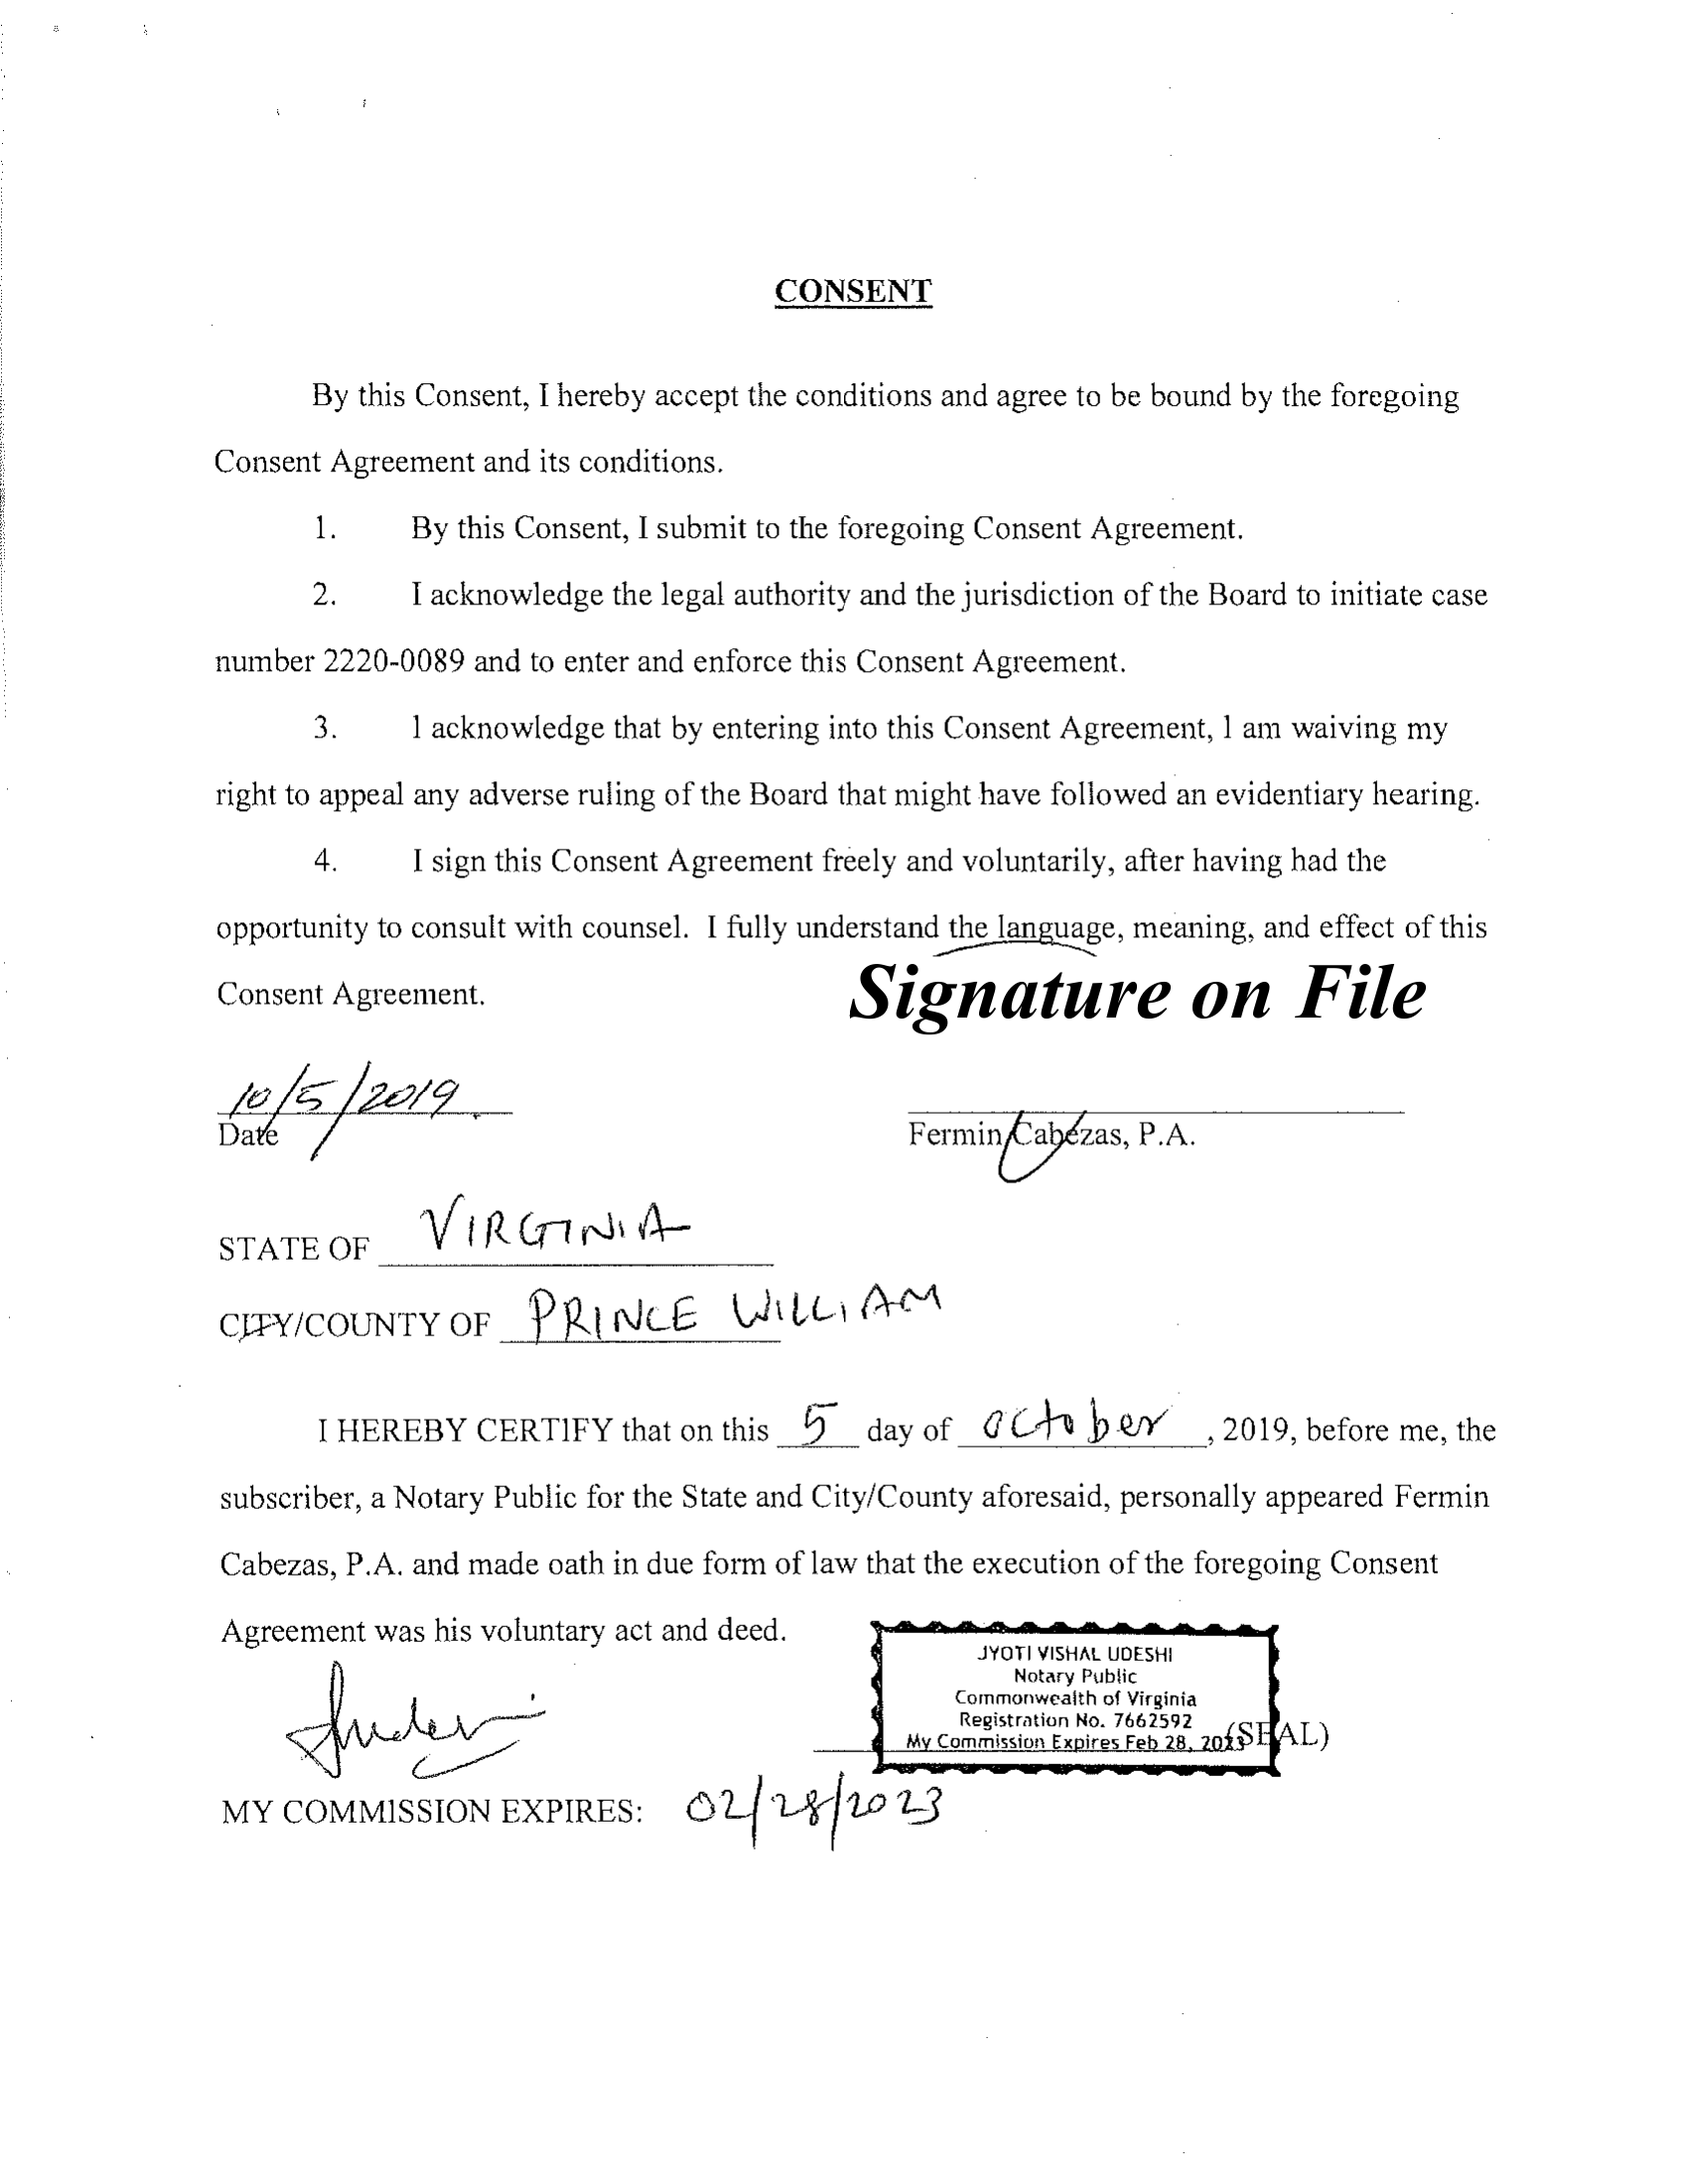 CONSENT
By this Consent, I hereby accept the conditions and agree to be bound by the foregoing
Consent Agreement and its conditions.
1. By this Consent, I submit to the foregoing Consent Agreement.
2. I acknowledge the legal authority and the jurisdiction of the Board to initiate case
number 2220-0089 and to enter and enforce this Consent Agreement.
3. I acknowledge that by entering into this Consent Agreement, I am waiving my
right to appeal any adverse ruling of the Board that might have followed an evidentiary hearing.
4. I sign this Consent Agreement freely and voluntarily, after having had the
opportunity to consult with counsel. I fully understand the language, meaning, and effect of this
Consent Agreement.
Signature on File
10/5/2019
Date
Fermin Cabezas, P.A.
STATE OF VIRGINIA
CITY/COUNTY OF PRINCE WILLIAM
I HEREBY CERTIFY that on this 5 day of october, 2019, before me, the
subscriber, a Notary Public for the State and City/County aforesaid, personally appeared Fermin
Cabezas, P.A. and made oath in due form of law that the execution of the foregoing Consent
Agreement was his voluntary act and deed.
JYOTI VISHAL UDESHI
Notary Public
Commonwealth of Virginia
Registration No. 7662592
My Commission Expires Feb 28, 2023
(SEAL)
MY COMMISSION EXPIRES: 02/28/2023